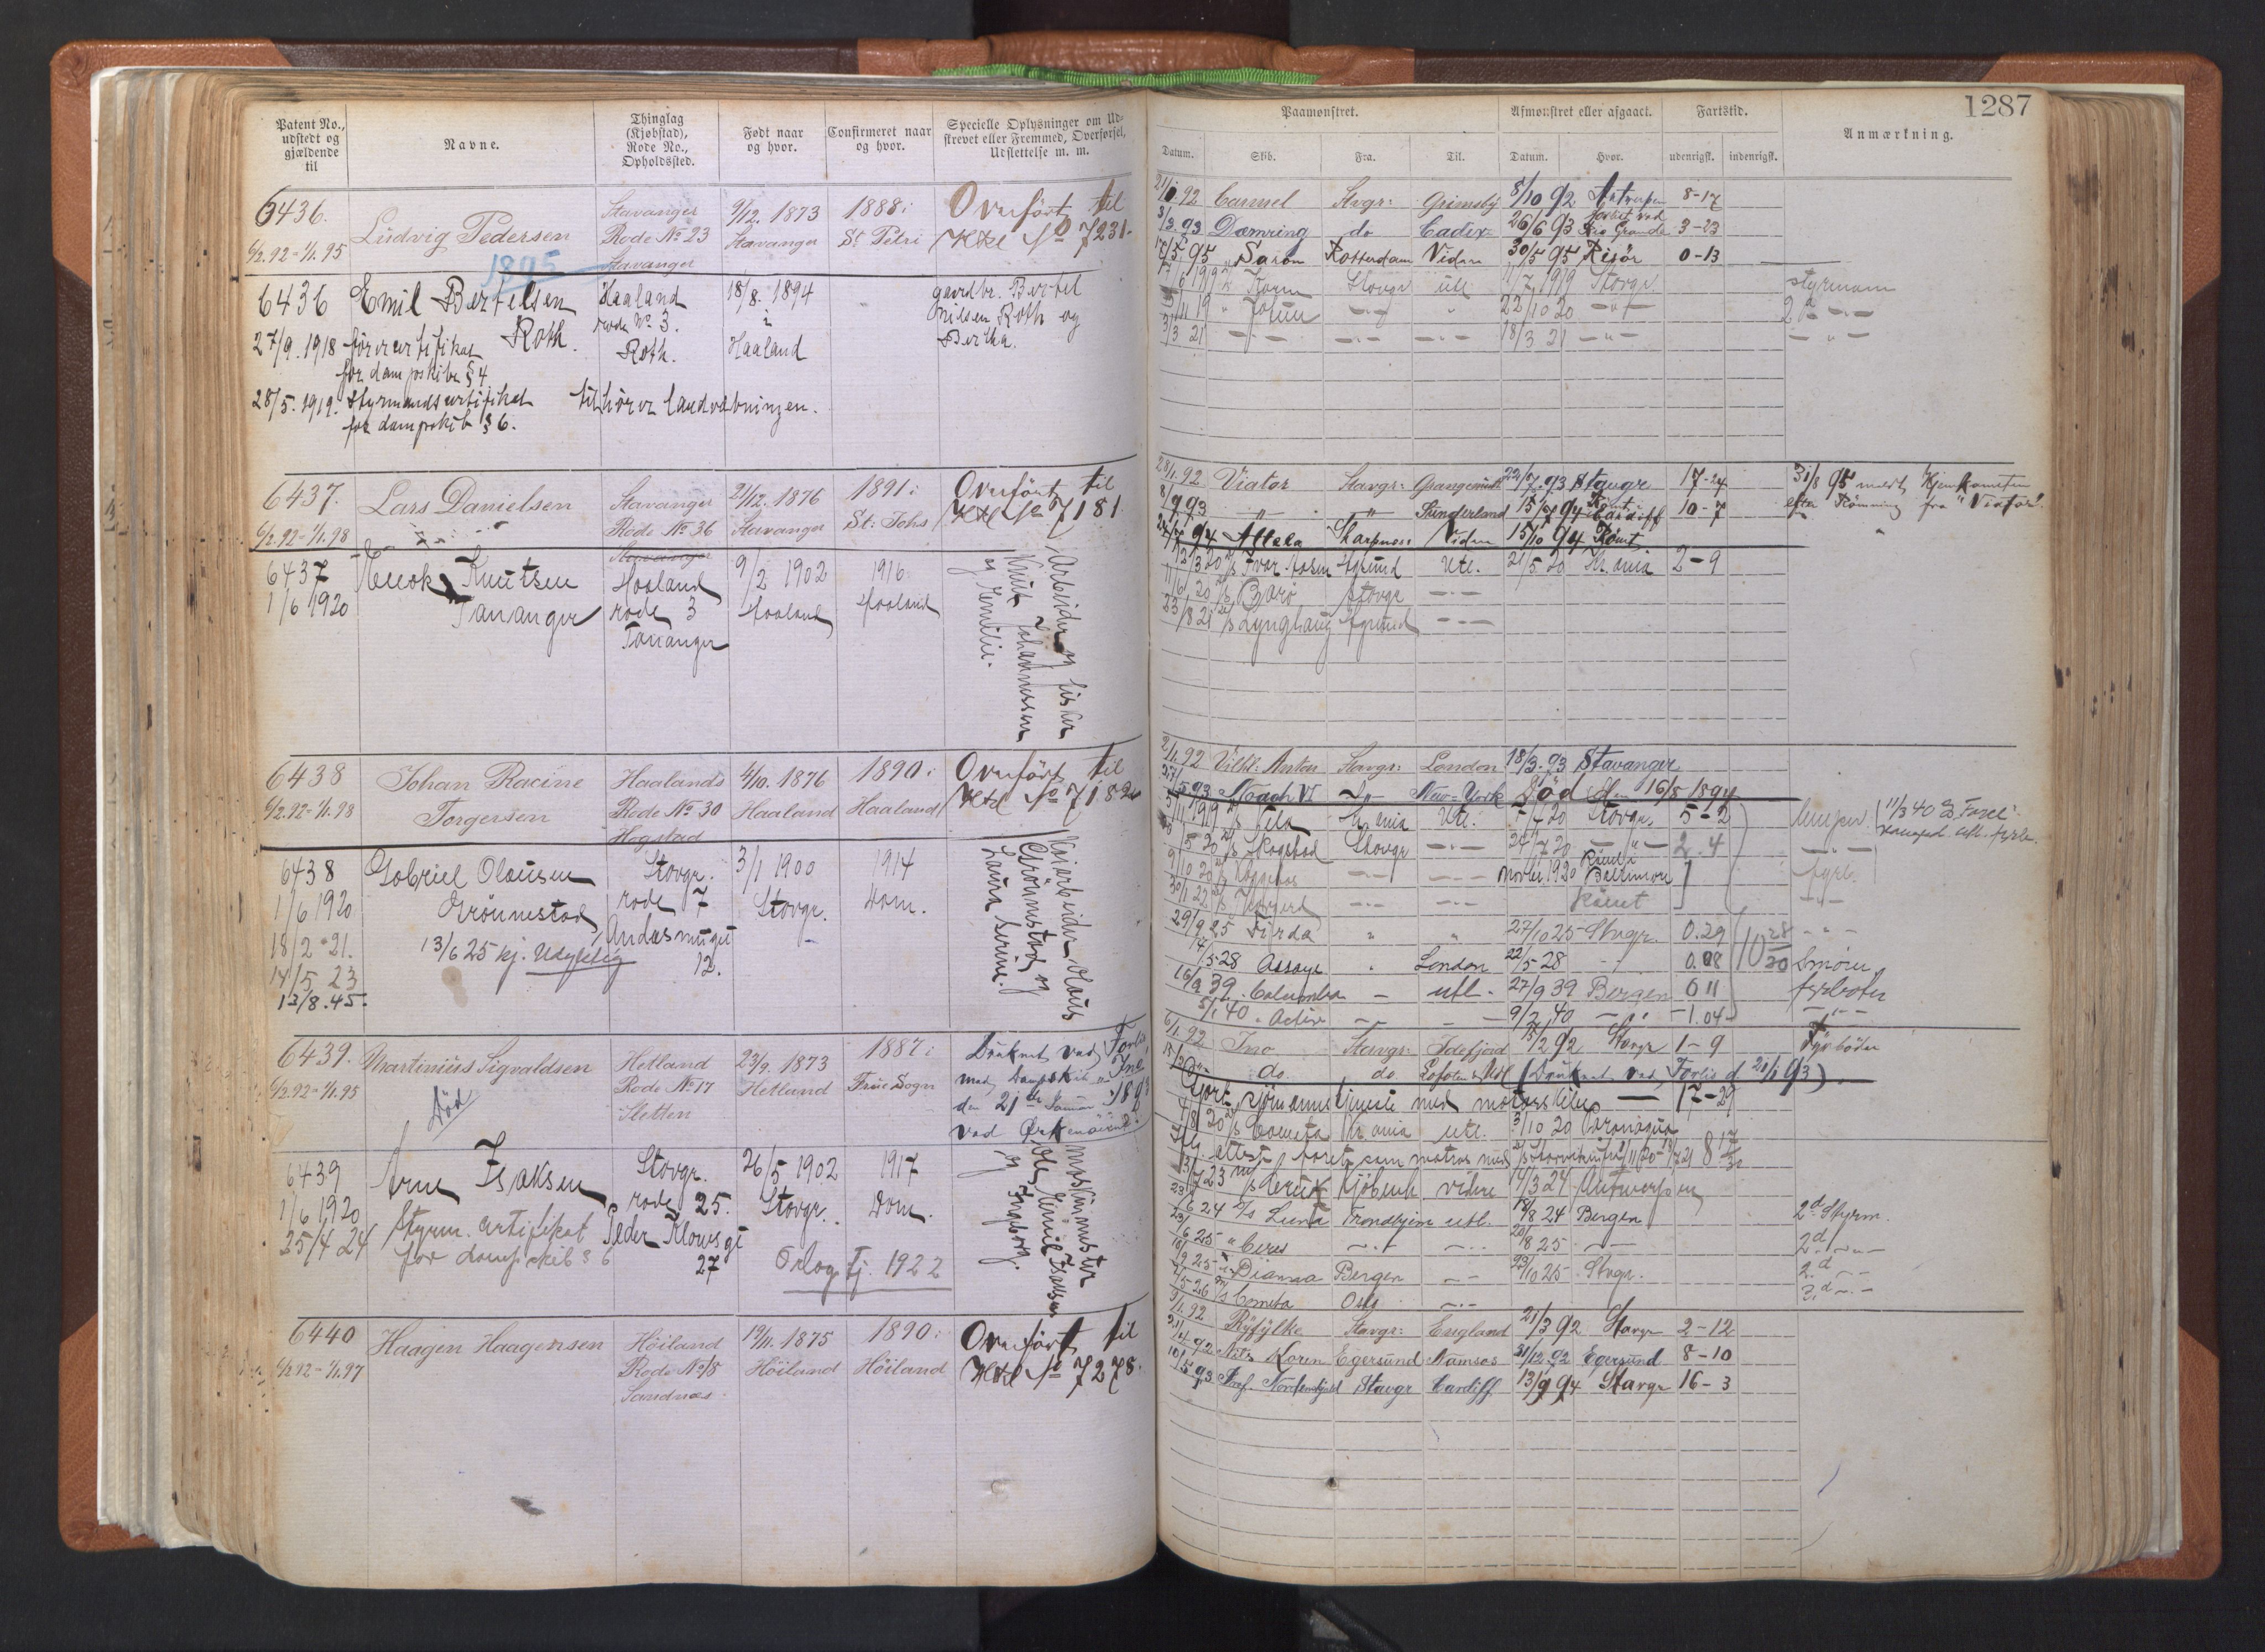 Patent No., udstedt og gjældende til
Navne.
Thinglag (Kjøbstad), Rode No., Opholdssted.
Født naar og hvor.
Confirmeret naar og hvor.
Specielle Oplysninger om Udskrevet eller Fremmed, Overførsel, Udslettelse m. m.
6436. Ludvig Pedersen Stavanger 9/12. 1873 1888 i Overført til
6/2.92-1/1.95 Rode No 23 Stavanger St Petri Htel No 7231.
1895 Stavanger
6436 Emil Bertelsen Haaland 18/8. 1894 gaardbr. Bertel
Roth. rode No 3. i Nilsen Roth og
27/9.1918 førercertifikat Roth. Haaland Bertha.
for dampskibe § 4
28/5.1919. Styrmandscertifikat tilhører landværbningen.
for dampskib § 6.
6437. Lars Danielsen Stavanger 21/12. 1876 1891 i Overført til
6/2.92-1/1.98 Rode No 36 Stavanger St: Johs Htel No 7181
Stavanger
6437 Enok Knutsen Haaland 9/2 1902 1916
1/6 1920 Tananger rode 3 Haaland Haaland
Tananger
Arbeider og fisker
Knut Johannessen
og Emilie.
6438 Johan Racine Haalands 4/10. 1876 1890 i Overført til
6/2.92-1/1.98 Torgersen Rode No 30 Haaland Haaland Htel No 7182
Hogstad
6438 Gabriel Olausen Stavgr. 3/1 1900 1914
1/6 1920 Grönnestad rode 7 Stavgr. Dom.
18/2 21. Andasmuget
14/5 23 13/6 25 kj. Udygtig 12.
13/8.45.
Havearbeider Olaus
Grönnestad og
Laura Serine.
6439. Martinius Sigvaldsen Hetland 23/9. 1873 1887 i Druknet ved Forlis
6/2.92-1/1.95 Rode No 17 Hetland Frue Sogn med Dampskib "Ino"
Død Sletten den 21de Januar 1893
ved Orknøierne.
6439 Arne Isaksen Stavgr. 26/5 1902 1917
1/6 1920 rode 25. Stavgr. Dom.
25/4 24 Styrm. certifikat Peder Klowsgt
for dampskib § 6 27 Orlogstj. 1922
maskinmester
Ole Emil Isaksen
og Ingeborg.
6440 Haagen Haagensen Höiland 19/11. 1875 1890 i Overført til
6/2 92-1/1.97 Rode No 18 Höiland Höiland Htel No 7278.
Sandnæs
1287
Paamønstret.
Afmønstret eller afgaaet.
Fartstid.
Anmærkning.
Datum. Skib. Fra. Til. Datum. Hvor. udenrigsk. indenrigsk.
21/1 92 Carmel Stvgr: Grimsby 8/10 92 Antwerpen 8-17
3/3.93 Dæmring do Cadix 26/6 93 forlist ved Rio Grande 3-23
17/5 95 Saron Rotterdam Viden 30/5 95 Risør 0-13
Stavgr utl 11/7 1919 Stavgr. styrmann
11 19 " Jotun 22/10 20 2d
3/3 21 18/3 21
28/1.92 Viator Stavgr: Grangemuth 22/7.93 Stavgr 17-24 31/8 95 meldt Hjemkommen
8/9 93 " " Sunderland 15/7 94 Rømt Cardiff 10-7 efter Rømning fra "Viator".
Attela Sharpness Viden 15/10 94 Rømt
12/3 20 Ivar Aasen Utl. 21/5 20 Kr.ania 2-9
11/6 20 Barø Stavgr
23/8 21 Lynghaug
2/1.92 Vilh: Anton Stavgr: London 18/3.93 Stavanger
27/5 93 Noach VI " New-York Død d. 16/5 1894
1919 Vela Kr.ania Utl. 7/7 20 Stavgr. 5-2 lemper
5 20 Skogstad Stavgr 24/7 20 2.4
9/10 20 Novber 1920 Rømt Baltimore fyrb.
30/1 22 Rømt
29/9 25 Firda " " 27/10 25 Stvgr. 0.29
14/5 28 Assaye London 22/5 28 0.08 Smører
16/9 39. Columba utl. 27/9 39 Bergen 0 11 fyrbøter
5/1 40 Activ 9/2 40 1.04
6/1.92 Ino Stavgr: Idefjord 15/2 92 Stavgr 1-9 Fyrbøder
do. do. Lofoten & Utl (Druknet ved Forlis d 21/1 93).
Gjort sjömannstjeneste med motorskibe 17-29
4/8 20 Cometa Kr.ania utl. 3/10 20
Iflg. attest faret som matros med
13/7 23 Kjöbenh videre 14/3 24 Antwerpen
23/6 24 Luna Trondhjem utl. 18/8 24 Bergen 2d Styrm.
23/6 25 " Ceres 20/8 25 2d
18/9 25 Dianna Bergen 23/10 25 Stvgr. 2d
2/5 26 Cometa Oslo 3d
9/1.92 Ryfylke Stavgr: England 21/3 92 Stavgr 2-12
21/4 92 Nils Koren Egersund Namsos 31/12 92 Egersund 8-10
10/5 93 Prof. Nordenskjöld Stavgr Cardiff 13/9 94 Stavgr 16-3